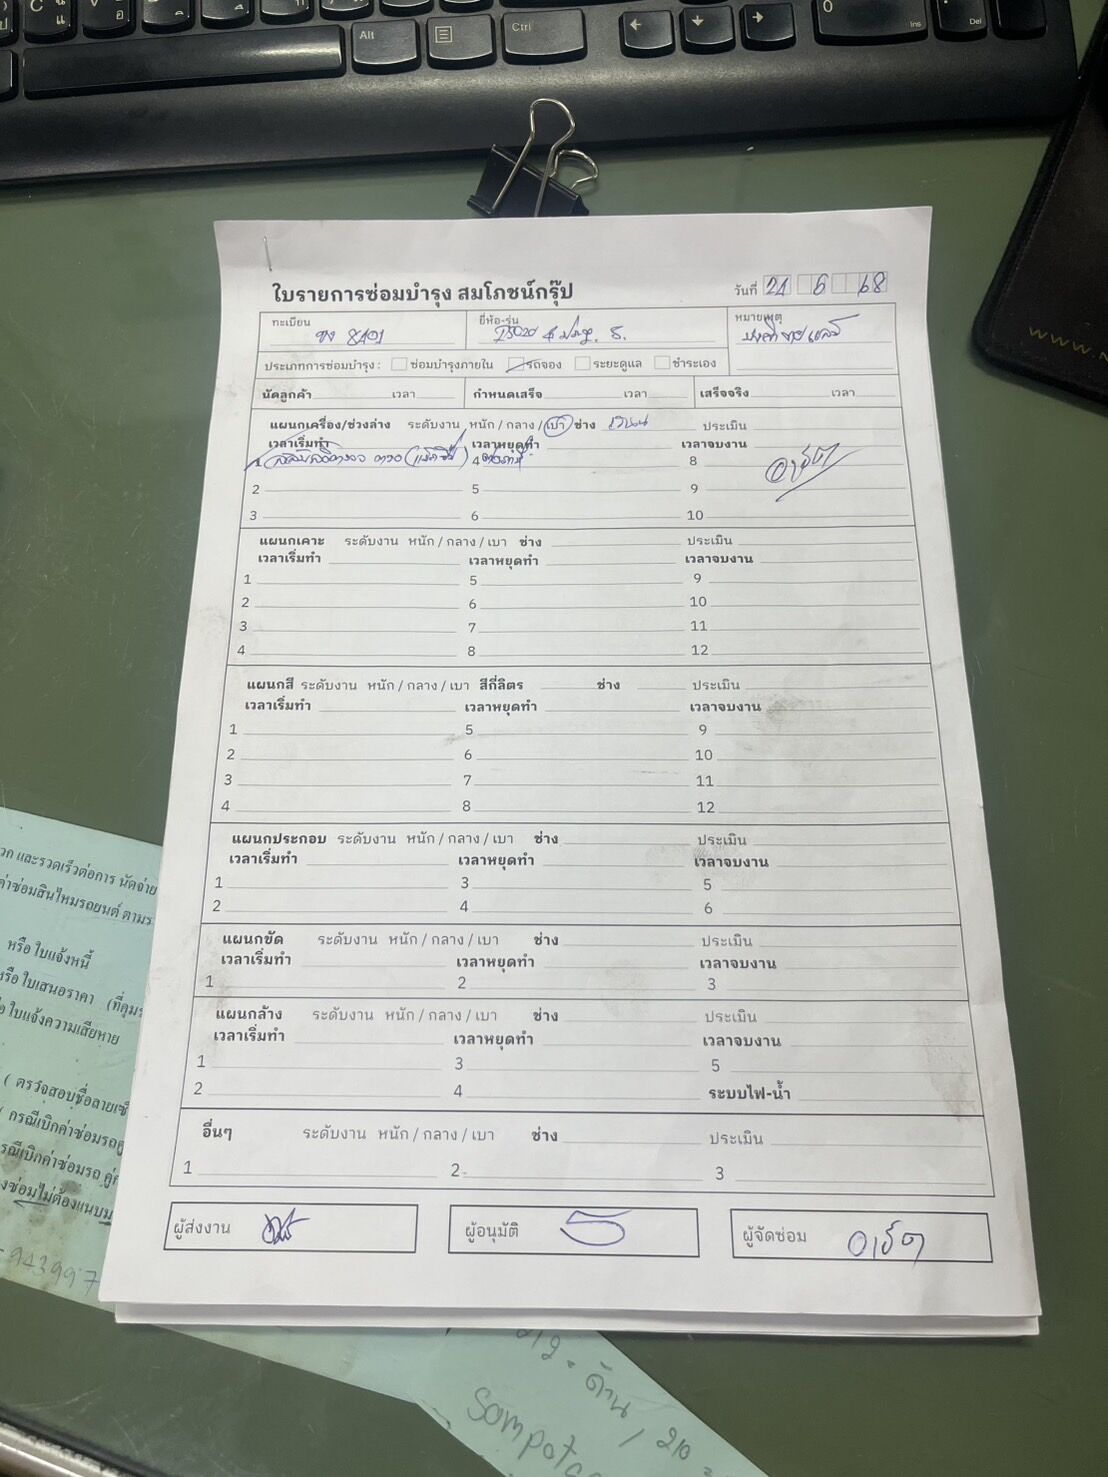 Alt
Ctrl
0
Ins
Del
ใบรายการซ่อมบำรุง สมโภชน์กรุ๊ป
วันที่ 24 6 68
ทะเบียน
8401
ยี่ห้อ-รุ่น
หมายเหตุ
ประเภทการซ่อมบำรุง : ซ่อมบำรุงภายใน รถจอง ระยะดูแล ชำระเอง
นัดลูกค้า เวลา กำหนดเสร็จ เวลา เสร็จจริง เวลา
แผนกเครื่อง/ช่วงล่าง ระดับงาน หนัก / กลาง / เบา ช่าง ประเมิน
เวลาเริ่มทำ เวลาหยุดทำ เวลาจบงาน
4 8
2 5 9
3 6 10
แผนกเคาะ ระดับงาน หนัก / กลาง / เบา ช่าง ประเมิน
เวลาเริ่มทำ เวลาหยุดทำ เวลาจบงาน
1 5 9
2 6 10
3 7 11
4 8 12
แผนกสี ระดับงาน หนัก / กลาง / เบา สีกี่ลิตร ช่าง ประเมิน
เวลาเริ่มทำ เวลาหยุดทำ เวลาจบงาน
1 5 9
2 6 10
3 7 11
4 8 12
แผนกประกอบ ระดับงาน หนัก / กลาง / เบา ช่าง ประเมิน
เวลาเริ่มทำ เวลาหยุดทำ เวลาจบงาน
1 3 5
2 4 6
แผนกขัด ระดับงาน หนัก / กลาง / เบา ช่าง ประเมิน
เวลาเริ่มทำ เวลาหยุดทำ เวลาจบงาน
1 2 3
แผนกล้าง ระดับงาน หนัก / กลาง / เบา ช่าง ประเมิน
เวลาเริ่มทำ เวลาหยุดทำ เวลาจบงาน
1 3 5
2 4 ระบบไฟ-น้ำ
อื่นๆ ระดับงาน หนัก / กลาง / เบา ช่าง ประเมิน
1 2 3
ผู้ส่งงาน ผู้อนุมัติ ผู้จัดซ่อม
และรวดเร็วต่อการ นัดจ่าย
ค่าซ่อมสินไหมรถยนต์
หรือ ใบแจ้งหนี้
หรือ ใบเสนอราคา
ใบแจ้งความเสียหาย
( ตรวจสอบชื่อลายเซ็
กรณีเบิกค่าซ่อมรถ
กรณีเบิกค่าซ่อมรถ
ซ่อมไม่ต้องแนบ
943997
212 - ด้าน / 210